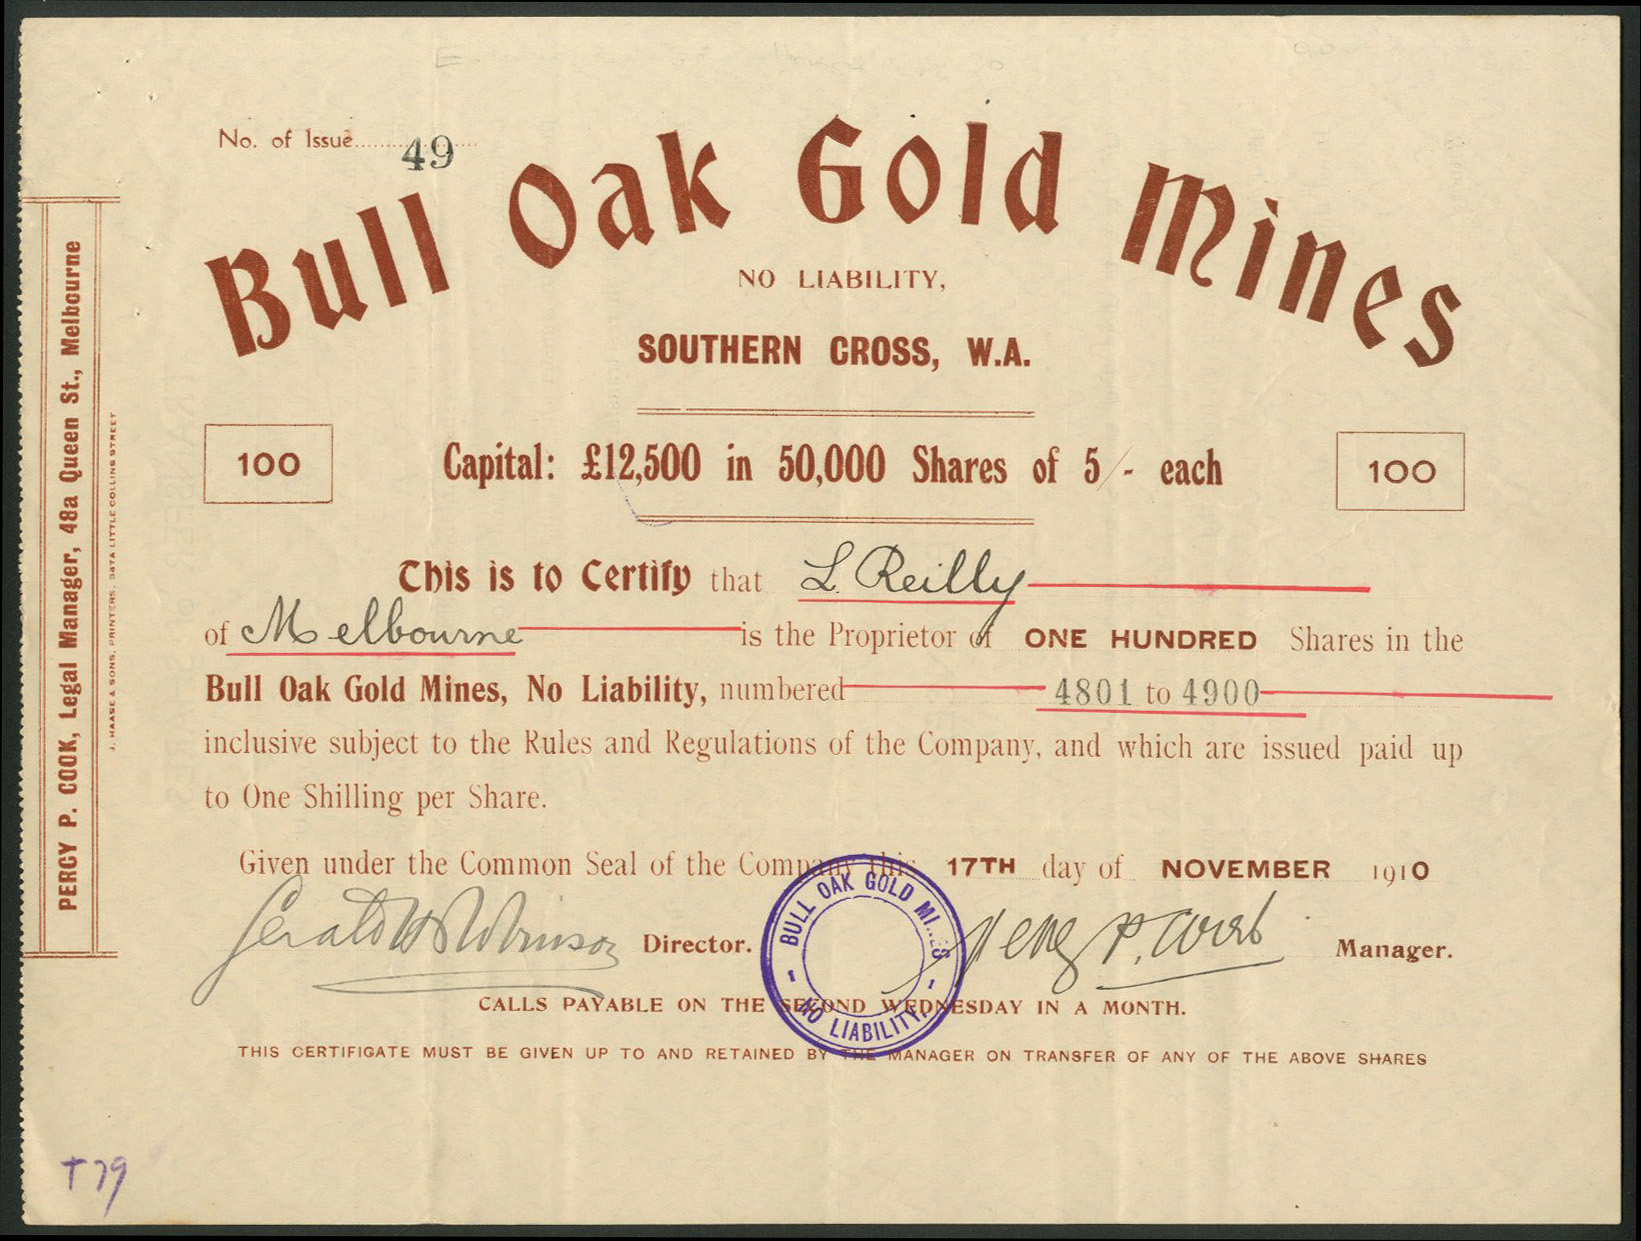 No. of Issue 49
Bull Oak Gold Mines
NO LIABILITY,
SOUTHERN CROSS, W.A.
100
Capital: £12,500 in 50,000 Shares of 5/- each
100
This is to Certify that L. Reilly
of Melbourne is the Proprietor of ONE HUNDRED Shares in the
Bull Oak Gold Mines, No Liability, numbered 4801 to 4900
inclusive subject to the Rules and Regulations of the Company, and which are issued paid up
to One Shilling per Share.
Given under the Common Seal of the Company this 17TH day of NOVEMBER 1910
Director.
Manager.
BULL OAK GOLD MINES
- NO LIABILITY, -
CALLS PAYABLE ON THE SECOND WEDNESDAY IN A MONTH.
THIS CERTIFICATE MUST BE GIVEN UP TO AND RETAINED BY THE MANAGER ON TRANSFER OF ANY OF THE ABOVE SHARES
PERCY P. COOK, Legal Manager, 48a Queen St., Melbourne
J. HAASE & SONS, PRINTERS, 347A LITTLE COLLINS STREET
T79